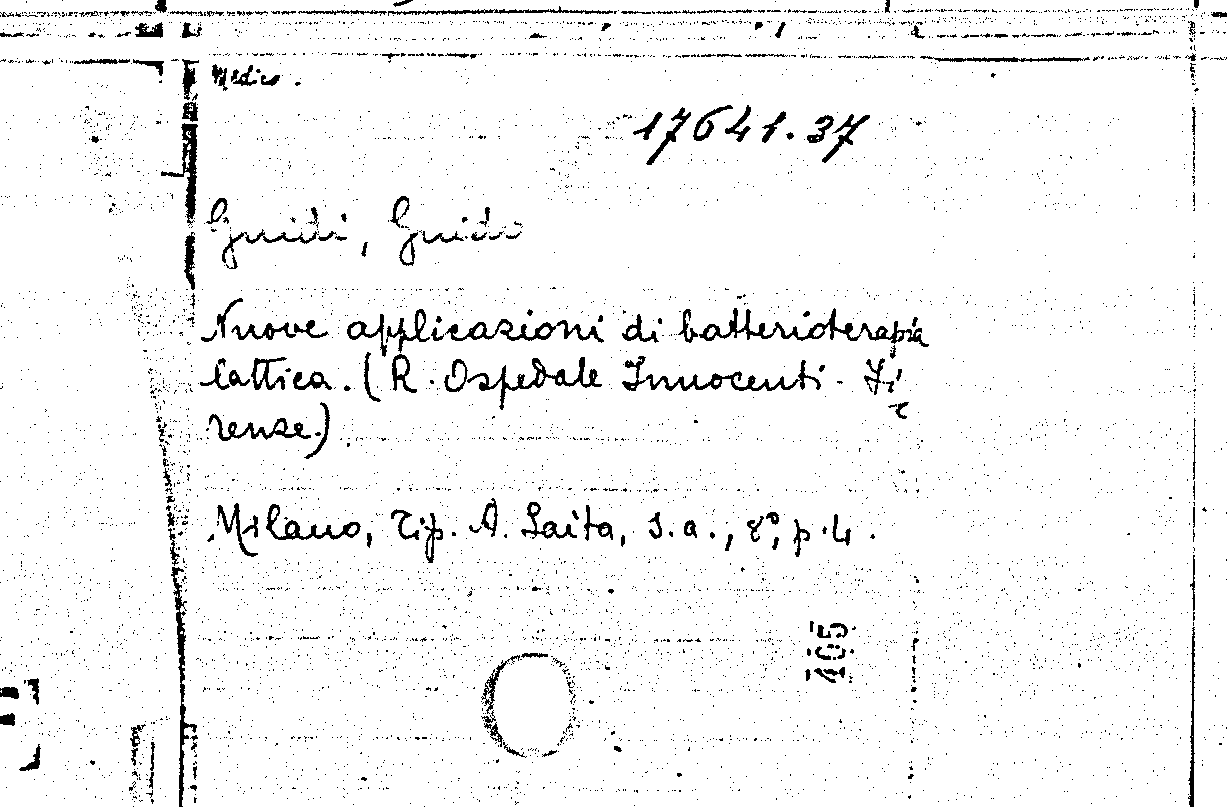 Medico.
17641.37
Guidi, Guido
Nuove applicazioni di batterioterapia
lattica. (R. Ospedale Innocenti. Fi
renze.)
Milano, Tip. A. Saita, s.a., 8°, p. 4.
105